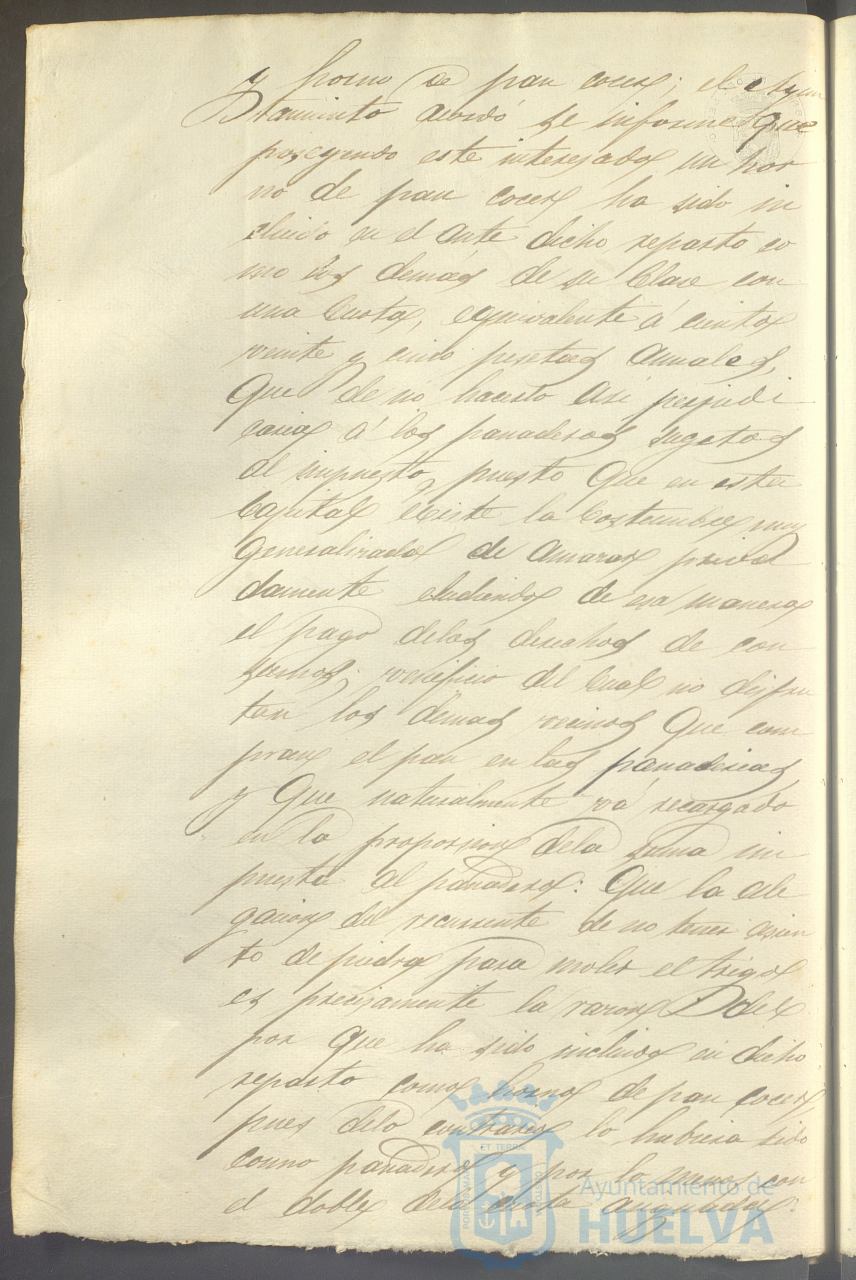 y horno de pan cocer; el Ayun
tamiento acordó se informe que
poseyendo este interesado un hor
no de pan cocer ha sido in
cluido en el ante dicho reparto co
mo los demás de su clase con
una Cuota, equivalente á ciento
veinte y cinco pesetas anuales,
Que de no hacerlo asi perjudi
caria á los panaderos sugetos
al impuesto, puesto que en esta
Capital existe la Costumbre muy
generalizada de amasar priva
damente eludiendo de esa manera
el pago delos derechos de con
sumos, veneficio del Cual no disfru
tan los demas vecinos que com
pran el pan en las panaderias
y que naturalmente vá recargado
en la proporsion dela suma im
puesta al panadero: Que la ale
gacion del recurrente de no tener asien
to de piedra para moler el trigo
es precisamente la razon del
por que ha sido incluido en dicho
reparto como horno de pan cocer,
pues delo contrario lo hubiera sido
como panadero y por lo menos con
el doble dela cuota asignada.
ET TERRAE
Ayuntamiento de
HUELVA